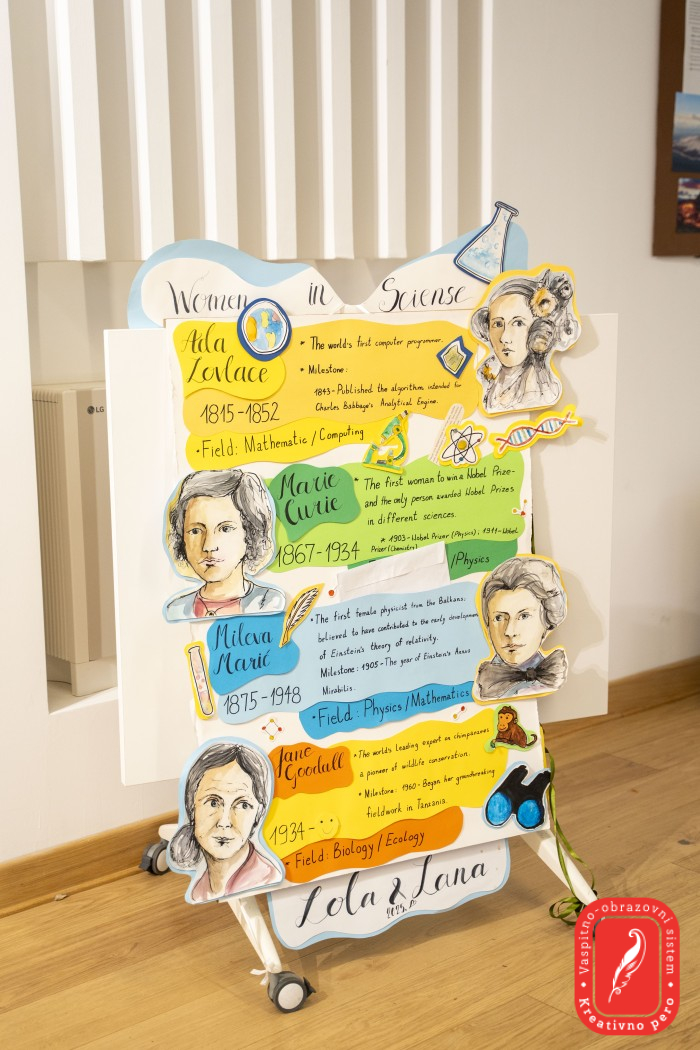 Women in Sciense
Ada
Lovlace
1815-1852
* The world's first computer programmer.
* Milestone:
1843-Published the algorithm intended for
Charles Babbage's Analytical Engine.
• Field: Mathematic / Computing
Marie
Curie
1867-1934
* The first woman to win a Nobel Prize-
and the only person awarded Nobel Prizes
in different sciences.
* 1903-Nobel Prizer (Physics); 1911-Nobel
Prizer (Chemistry)
/Physics
Mileva
Marić
1875-1948
* The first female physicist from the Balkans;
believed to have contributed to the early development
of Einstein's theory of relativity.
Milestone: 1905-The year of Einstein's Annus
Mirabilis.
• Field: Physics / Mathematics
Jane
Goodall
1934-
* The world's leading expert on chimpanzees,
a pioneer of wildlife conservation.
* Milestone: 1960-Began her groundbreaking
fieldwork in Tanzania.
• Field: Biology / Ecology
Lola & Lana
LG
Vaspitno-obrazovni sistem
Kreativno pero